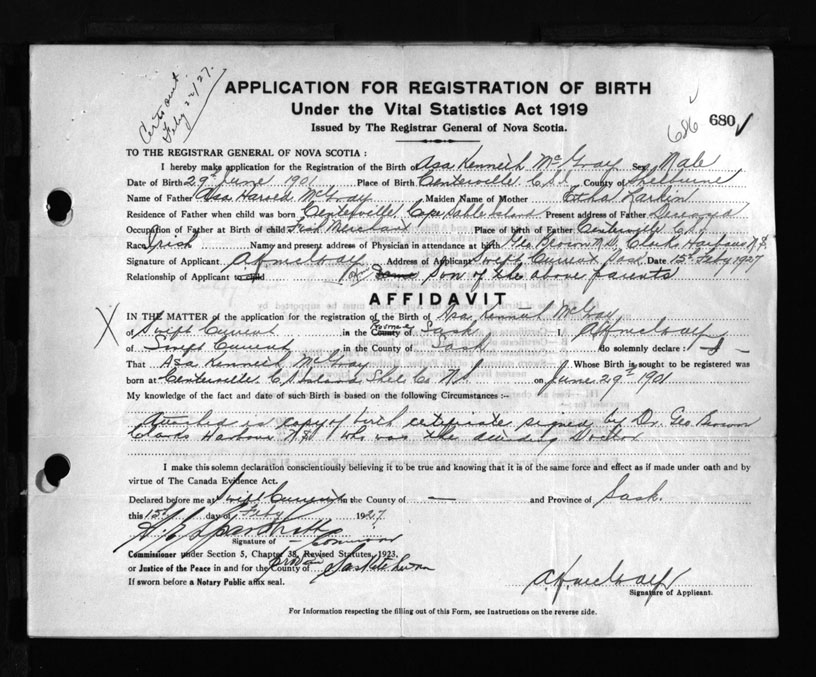 Feby 22/27.
APPLICATION FOR REGISTRATION OF BIRTH
Under the Vital Statistics Act 1919
Issued by The Registrar General of Nova Scotia.
686
680
TO THE REGISTRAR GENERAL OF NOVA SCOTIA :
I hereby make application for the Registration of the Birth of Asa Kenneth McGray Sex Male
Date of Birth 29th June 1901 Place of Birth Centerville C.S.I. County of Shelburne
Name of Father Asa Harvey McGray Maiden Name of Mother Etha Larkin
Residence of Father when child was born Centerville, Cape Sable Island Present address of Father Deceased
Occupation of Father at Birth of child Fish Merchant Place of birth of Father Centerville C.S.I.
Race Irish Name and present address of Physician in attendance at birth Geo Brown M.D, Clarks Harbour N.S.
Signature of Applicant AKMcGray Address of Applicant Swift Current Sask Date 15th Feby 1927
Relationship of Applicant to child Son of the above parents
AFFIDAVIT
X
IN THE MATTER of the application for the registration of the Birth of Asa Kenneth McGray
of Swift Current in the County Sask I, AKMcGray
of Swift Current in the County of Sask do solemnly declare : I
That Asa Kenneth McGray Whose Birth is sought to be registered was
born at Centerville, C. S. Island, Shel. Co. N.S. on June 29th 1901
My knowledge of the fact and date of such Birth is based on the following Circumstances :-
Attached is copy of birth certificate signed by Dr. Geo. Brown
Clarks Harbour N.S. who was the attending Doctor
I make this solemn declaration conscientiously believing it to be true and knowing that it is of the same force and effect as if made under oath and by
virtue of The Canada Evidence Act.
Declared before me at Swift Current in the County of — and Province of Sask.
this 15th day of Feby 1927
Signature of
Commissioner under Section 5, Chapter 38, Revised Statutes, 1923,
or Justice of the Peace in and for the County of Saskatchewan
If sworn before a Notary Public affix seal.
AKMcGray
Signature of Applicant.
For Information respecting the filling out of this Form, see Instructions on the reverse side.